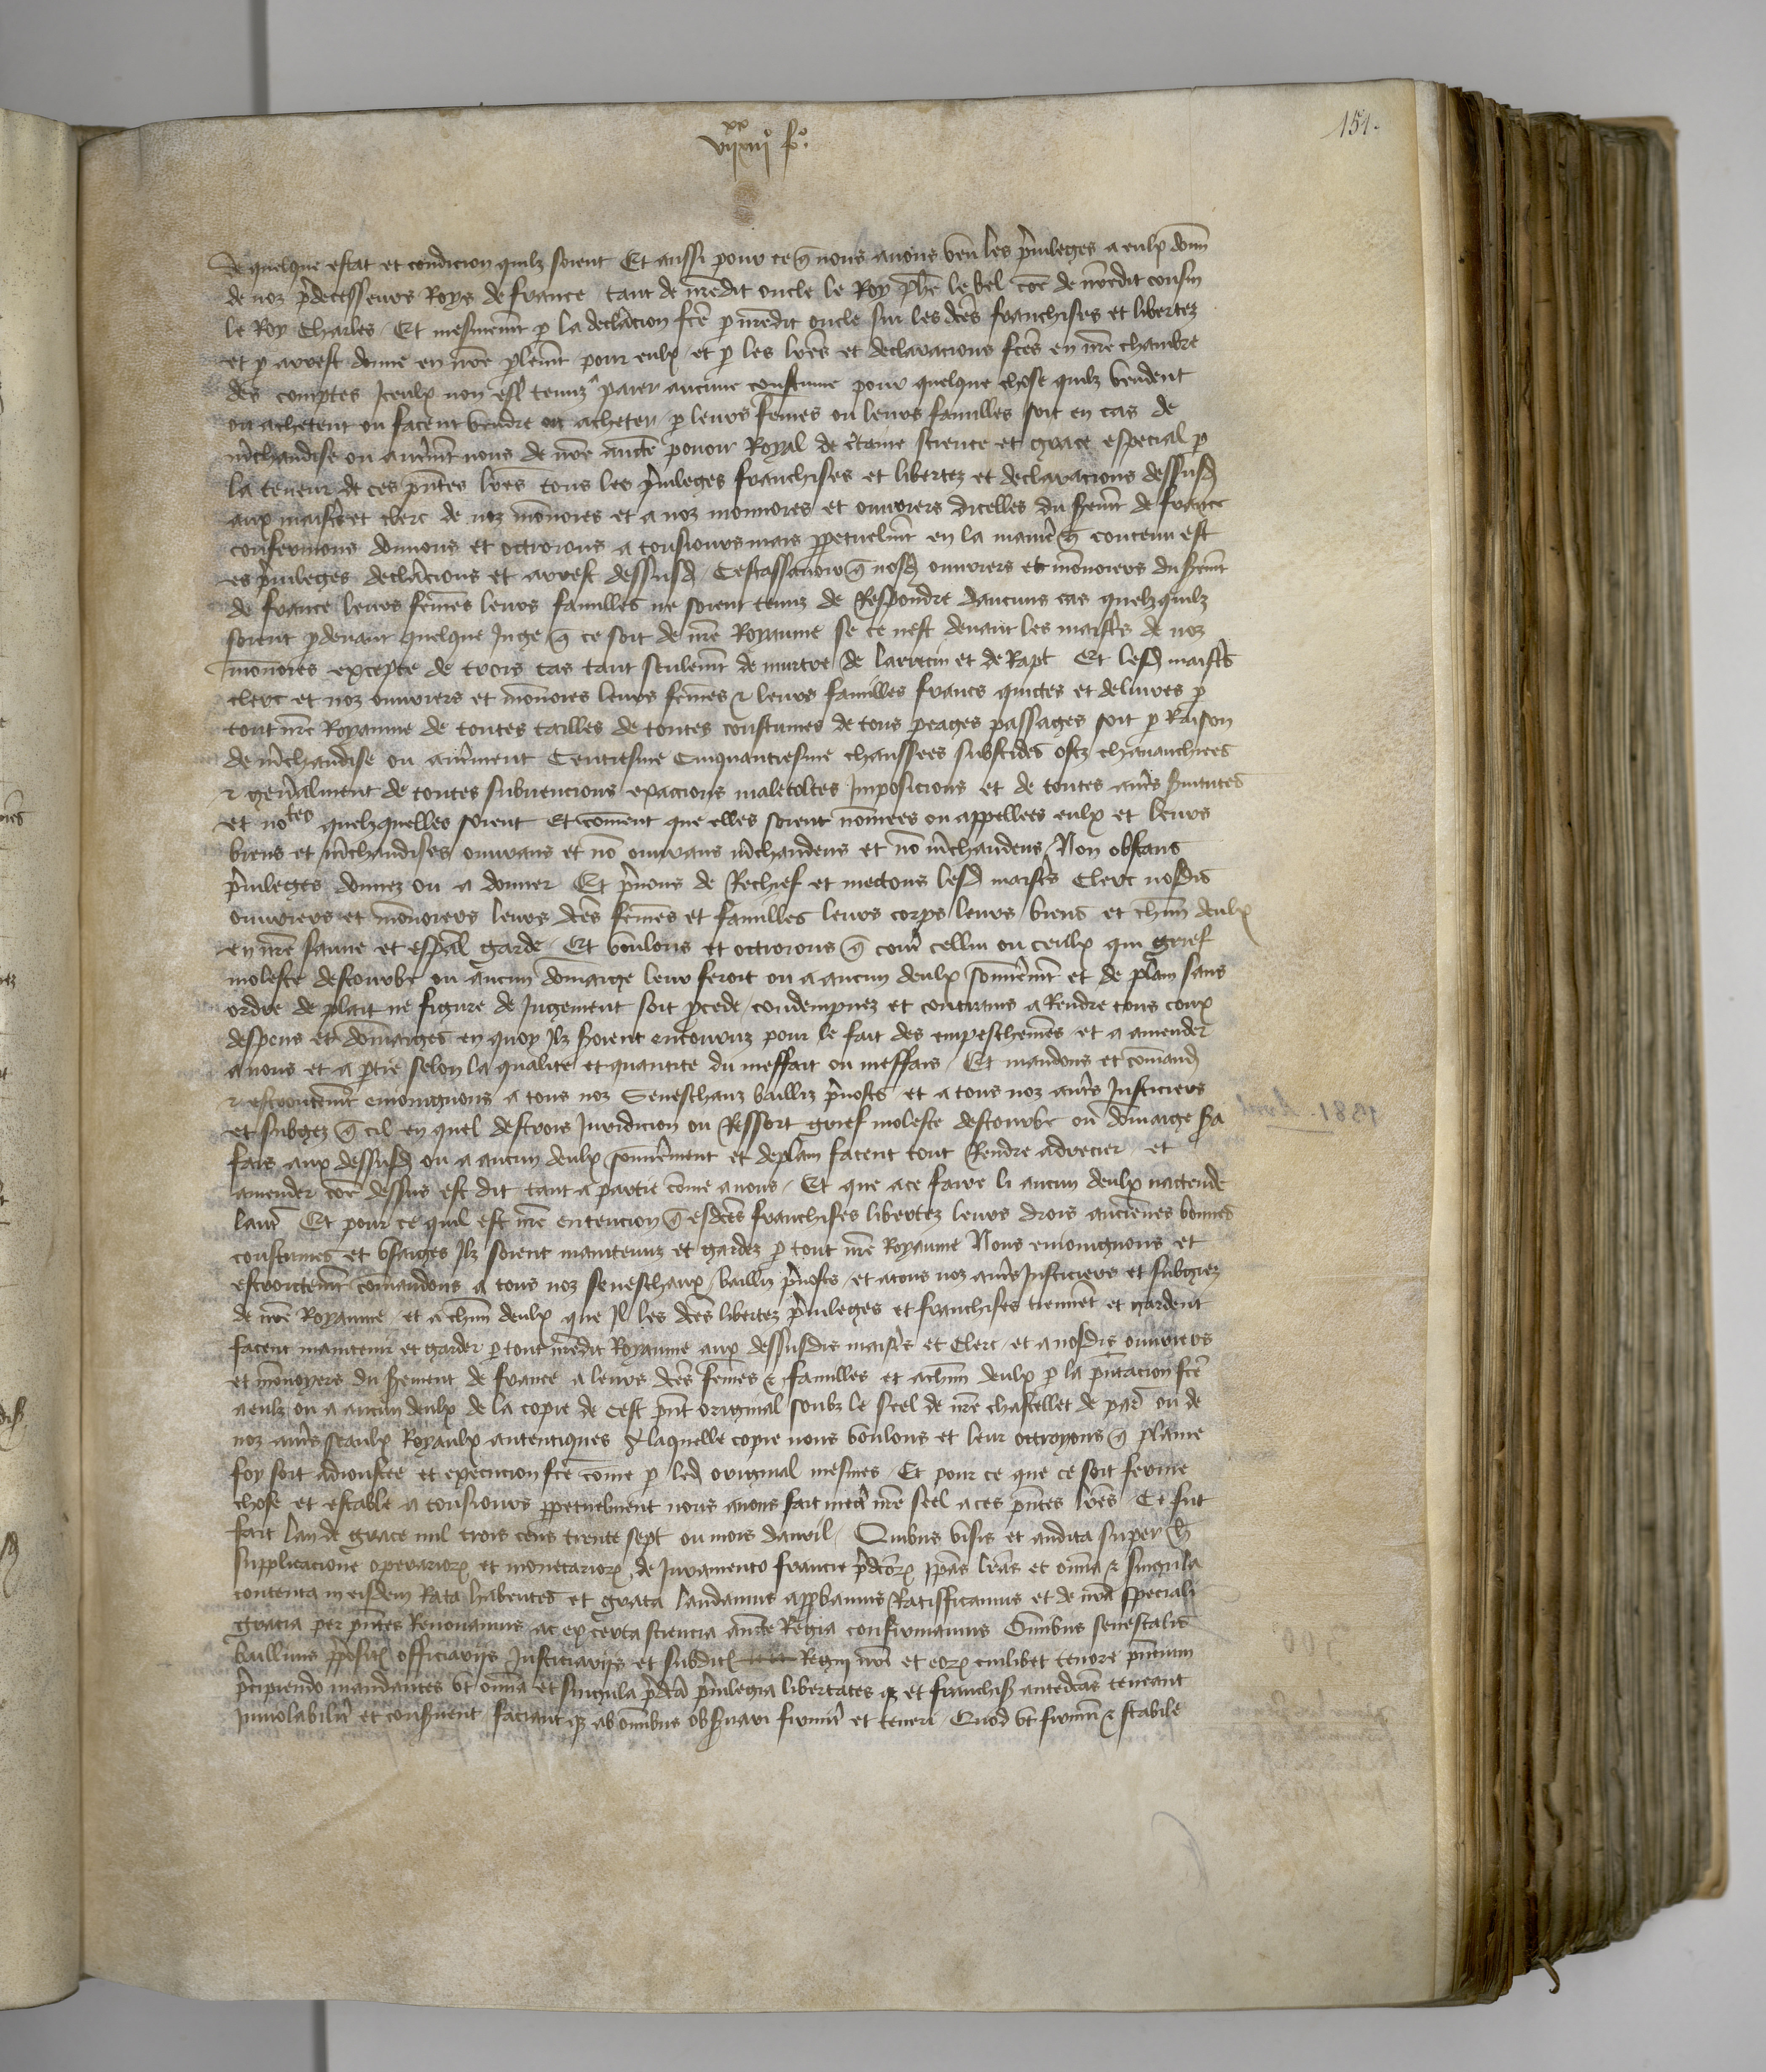 vijxx xiiij fo.
154.
de quelque estat et condicion quilz soient Et aussi pour ce q̄ nous auons veu les p̄uileges a eulx donn̄
de noz p̄decesseurs Roys de france tant de nr̄edit oncle le Roy ph̄e le bel cōe de nr̄edit cousin
le Roy Charles Et mesmem̄t p la declar̄acion fc̄e p nr̄edit oncle sur les dc̄es franchises et libertez
et p arrest donne en nr̄e plem̄t pour eulx et p les lr̄es et declaracions fc̄es en nr̄e chambre
des comptes Iceulx non est̄ tenuz a paier aucune coustume pour quelque chose quilz vendent
ou achetent ou facent vendre ou acheter p leurs fēmes ou leurs familles soit en cas de
m̄chandise ou aut̄m̄t nous de nr̄e auct̄e pouoir Royal de c̄taine science et grace especial p
la teneur de ces pn̄tes lr̄es tous les p̄uileges franchises et libertez et declaracions dessusd̄
aux maist̄s et clerc de noz mōnoies et a noz monnoies et ouuriers dicelles du serem̄t de france
confermons donnons et octroions a tousiours mais ppetuelm̄t en la manie᷒ q̄ contenu est
es p̄uileges declar̄acions et arrest dessusd̄ Cestassauoir q̄ nosd̄ ouuriers et mōnoiers du serem̄t
de france leurs fēmes leurs familles ne soient tenuz de Respondre daucuns cas quelzquilz
soient pdeuant quelque Iuge q̄ ce soit de nr̄e Royaume se ce nest deuant les maist̄s de noz
monoies excepte de trois cas tant seulem̄t de murtre de larrecin et de Rapt Et lesd̄ maist̄s
clerc et noz ouuriers et mōnoies leurs fēmes & leurs familles francs quictes et deliures p
tout nr̄e Royaume de toutes tailles de toutes coustumes de tous peages passages soit p Raison
de m̄chandise ou aut̄ment Centiesme Cinquantiesme chaussees subsides ostz chauauchees
& gen̄alment de toutes subuencions exaccions maletoltes Imposicions et de toutes aut̄s s̄uitutes
et no tes quelzquelles soient Et cōment que elles soient nōmees ou appellees eulx et leurs
biens et m̄chandises ouurans et nō ouurans m̄chandens et nō m̄chandens Non obstans
p̄uileges donnez ou a donner Et p̄nons de Rechief et mectons lesd̄ maist̄s Clerc nosdis
ouuriers et mōnoiers leurs dc̄es fēmes et familles leurs corps leurs biens et ch̄un deulx
en nr̄e sauue et esp̄al garde Et voulons et octroions q̄ cont̄ cellui ou ceulx qui grief
moleste destourbe᷒ ou aucun dōmaige leur feroit ou a aucun deulx sommier̄em̄t et de plain sans
ordre de plait ne figure de Iugement soit pcede condempnez et contrains a Rendre tous coux
despens et dōmaiges en quoy Ilz seroient encouruz pour le fait des empeschemēs et a amender
a nous et a ptie selon la qualite et quantite du meffait ou meffais Et mandons et cōmand̄
& estroictem̄t enioingnons a tous noz Seneschaux bailliz p̄uosts et a tous noz aut̄s Iusticiers
et subgez q̄ cil en quel destrois Iuridicion ou Ressort grief moleste destourbe᷒ ou dōmaige s̄a
fais aux dessusd̄ ou a aucun deulx sommier̄ement et de plain facent tout Rendre adrecier et
amender cōe dessus est dit tant a partie cōme a nous Et que a ce faire li aucun deulx nactende
laut̄ Et pour ce quil est nr̄e entencion q̄ esdc̄es franchises libertez leurs drois anciēnes bonnes
coustumes et vsaiges Ilz soient maintenuz et gardez p tout nr̄e Royaume Nous enioingnons et
estroictem̄t cōmandons a tous noz seneschaux bailliz p̄uosts et a tous noz aut̄s Iusticiers et subgiez
de nr̄e Royaume et a ch̄un deulx que Il les dc̄es libertez p̄uileges et franchises tiennēt et gardent
facent maintenir et garder p tout nr̄edit Royaume aux dessusdis maist̄e et Clerc et a nosdis ouuriers
et mōnoyers du serement de france a leurs dc̄es fēmes & familles et a ch̄un deulx p la pn̄tacion fc̄e
a eulz ou a aucun deulx de la copie de cest pn̄t original soubz le seel de nr̄e chastellet de par̄ ou de
noz aut̄s seaulx Royaulx autentiques A laquelle copie nous voulons et leur octroyons q̄ plaine
foy soit adioustee et execucion fc̄e cōme p led̄ original mesmes Et pour ce que ce soit ferme
chose et estable a tousiours ppetuelment nous auons fait mect̄ nr̄e seel a ces pn̄tes lr̄es Ce fut
fait lan de grace mil trois cens trente sept ou mois dauril Quibus visis et audita super h̄
supplicacione operarioꝝ et monetarioꝝ de Iuramento francie p̄dc̄oꝝ ip̄as lr̄as et om̄ia & singula
contenta in eisdem Rata habentes et grata laudamus appbamus Ratifficamus et de nr̄a speciali
gracia per pn̄tes Renouamus ac ex certa sciencia auct̄e Regia confirmamus Omnibus senescallis
balliuis p̄posit̄ officiariis Iusticiariis et subdit̄ Regni nr̄i et eoꝝ cuilibet tenore pn̄cium
p̄cipiendo mandantes vt om̄ia et singula p̄dc̄a p̄uilegia libertates qꝫ et franchis̄ antedc̄as teneant
Inuiolabilit̄ et conseruent faciantqꝫ ab om̄ibus obseruari firmit̄ et teneri Quod vt firmū & stabile